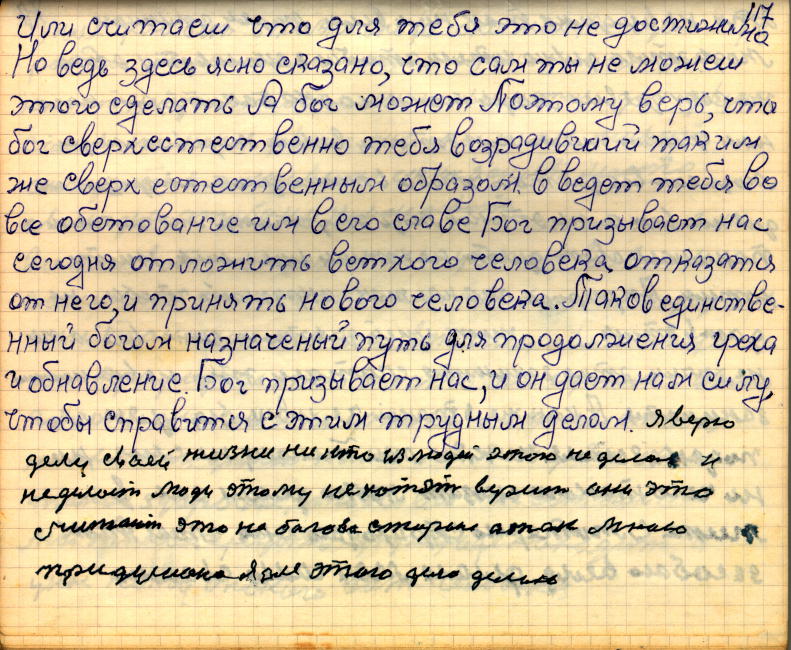 117
Или считаеш что для тебя это не достижимо на
Но ведь здесь ясно сказано, что сам ты не можеш
этого сделать А бог может Поэтому верь, что
бог сверхестественно тебя возрадивший таким
же сверх естественным образом в ведет тебя во
все обетование им в его славе Бог призывает нас
сегодня отложить ветхого человека отказатся
от него, и принять нового человека. Таков единстве-
нный богом назначеный путь для продолжения греха
и обнавление. Бог призывает нас, и он дает нам силу,
чтобы справится с этим трудным делом. я верю
делу своей жизни ни кто из людей этого не делал и
неделоит люди этому не хотят верит они это
считают это на багова старые а так много
придумано я эти этого дело делаю